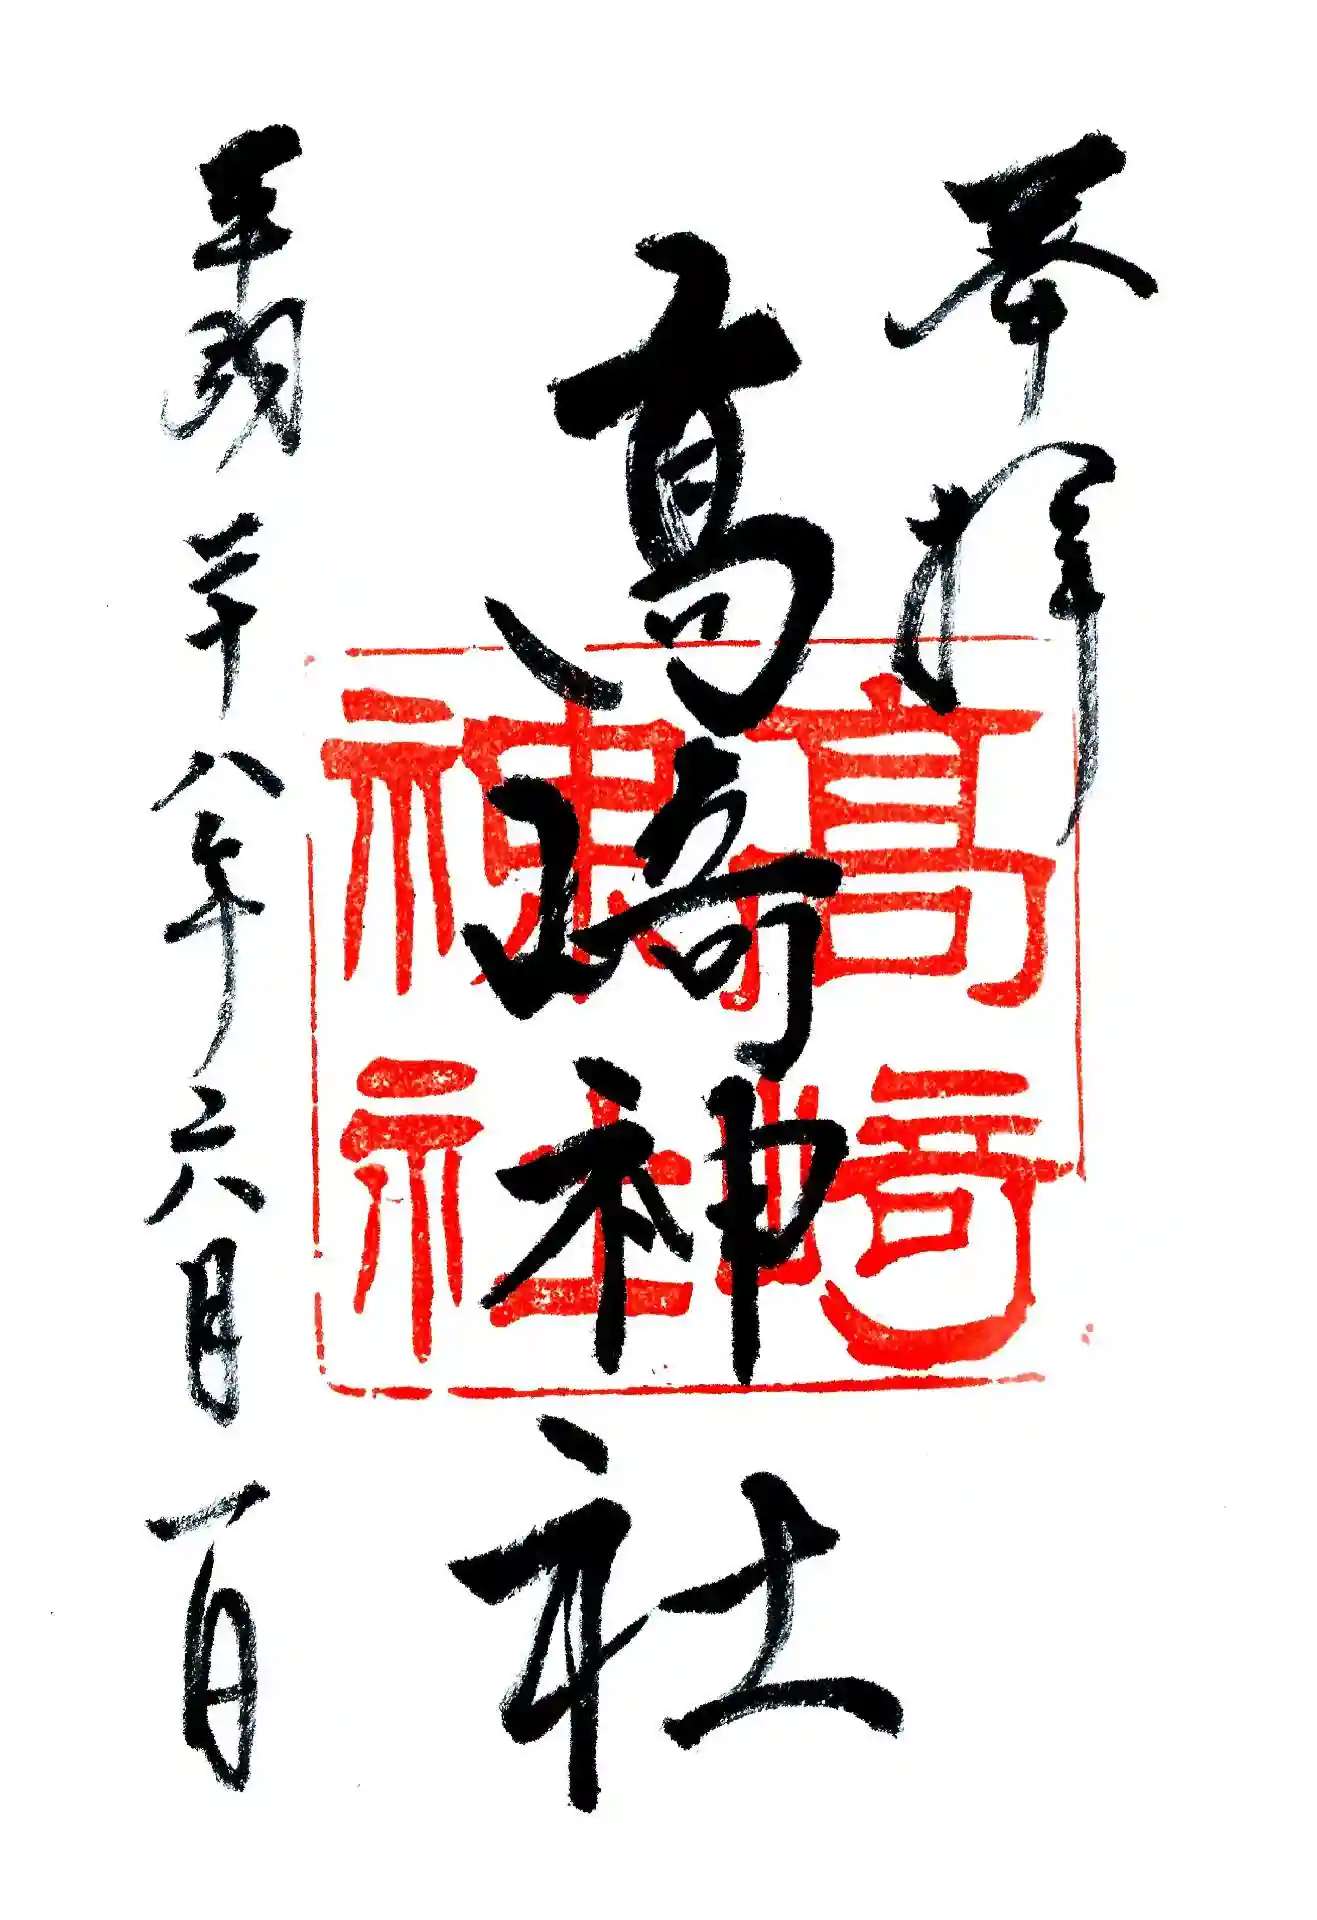 奉拝
高崎神社
高崎
神社
平成二十八年六月一日